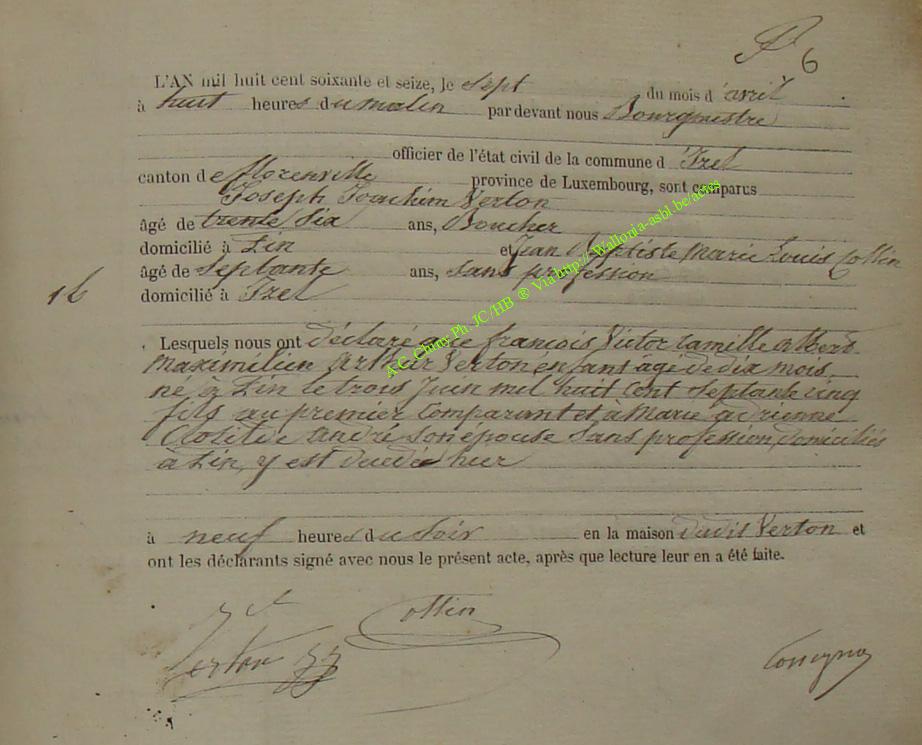 6
L'AN mil huit cent soixante et seize, le sept du mois d'avril
à huit heures du matin par devant nous Bourgmestre
officier de l'état civil de la commune d'Izel
canton de florenville province de Luxembourg, sont comparus
Joseph Joachim Verton
âgé de trente six ans, Boucher
domicilié à Pin et Jean Baptiste Marie Louis Collin
âgé de septante ans, sans profession
16
domicilié à Izel
Lesquels nous ont déclaré que francois Victor Camille albert
Maximilien Arthur Verton enfant âgé de dix mois
né à Pin le trois Juin mil huit cent septante cinq
fils au premier Comparant et à Marie adrienne
Clotilde andré son épouse sans profession, domiciliés
à Pin, y est décédé hier
à neuf heures du soir en la maison dudit Verton et
ont les déclarants signé avec nous le présent acte, après que lecture leur en a été faite.
Collin
Verton JJ
A.C. Chiny Ph. JC/HB ® Via http://Wallonia-asbl.be/actes